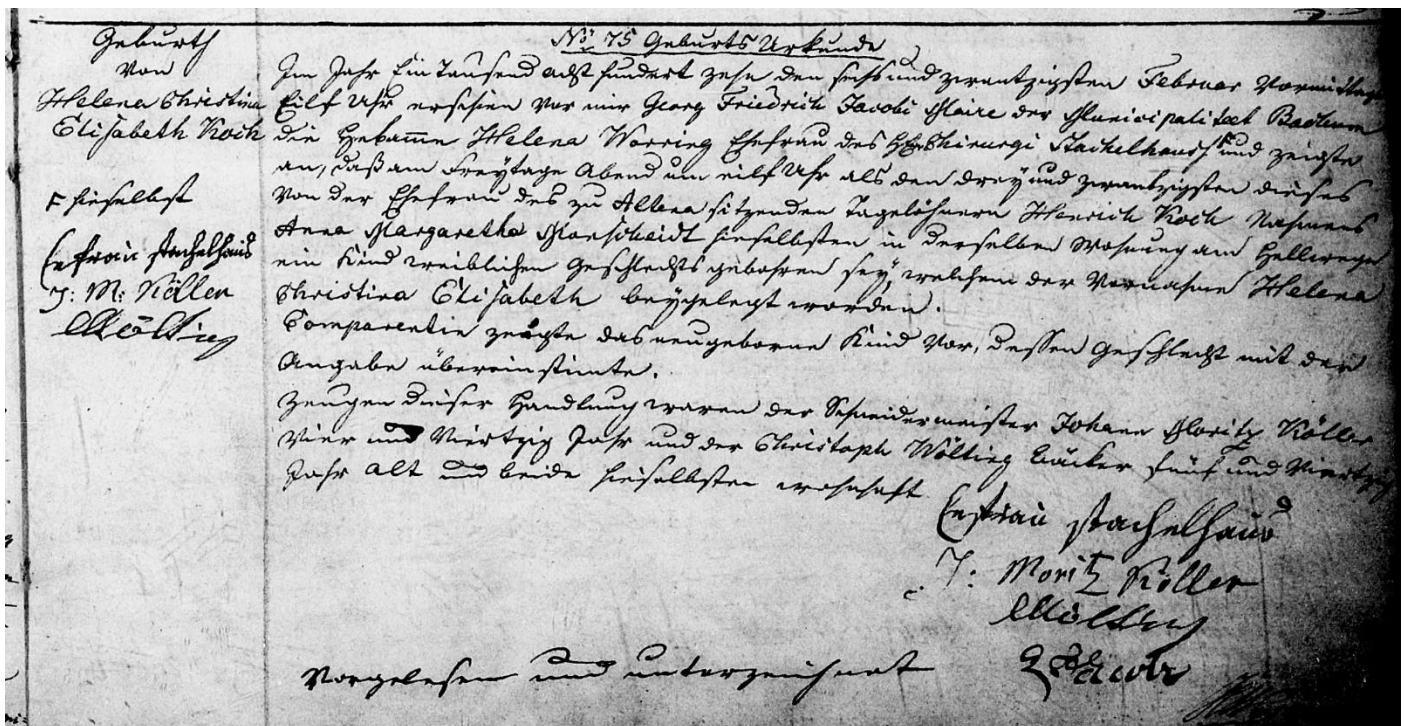 Geburth
von
Helena Christina
Elisabeth Koch
F hieselbst
Eefrau stachelhaus
J: M: Köller
CWölting
No 75 Geburts Urkunde
Im Jahr Ein Tausend acht hundert zehn den sechs und zwantzigsten Februar Vormittags
Eilf Uhr erschien vor mir Georg Friedrich Jacobi Maire der Municipalitaet Bochum
die Hebamme Helena Worring Ehefrau des H. Chirurgi Stachelhaus F und zeigte
an, daß am Freytage Abend um eilf Uhr als den drey und zwantzigsten dieses
von der Ehefrau des zu Altena sitzenden Tagelöhnern Henrich Koch Nahmens
Anna Margaretha Manscheidt hieselbsten in derselben Wohnung am Hellwege
ein Kind weiblichen Geschlechts gebohren sey, welchem der Vornahme Helena
Christina Elisabeth beygelegt worden.
Comparentin zeigte das neugeborne Kind vor, dessen Geschlecht mit der
Angabe übereinstimte.
Zeugen dieser Handlung waren der Schneidermeister Johann Moritz Köller
Vier und Viertzig Jahr und der Christoph Wölting Bäcker fünf und Viertzig
Jahr alt und beide hieselbsten wohnhaft
Eefrau stachelhaus
J: Moritz Köller
CWölting
Vorgelesen und unterzeichnet Jacobi